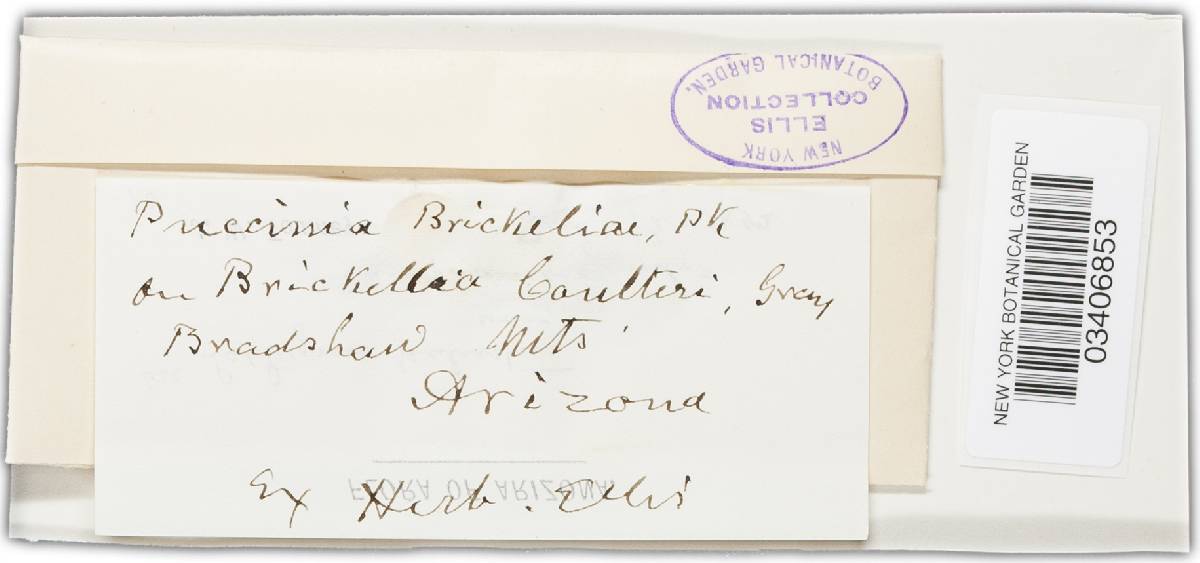 NEW YORK
ELLIS
COLLECTION
BOTANICAL GARDEN.
Puccinia Brickeliae, Pk
on Brickellia Coulteri, Gray
Bradshaw Mts
Arizona
FLORA OF ARIZONA.
Ex Herb. Ellis
NEW YORK BOTANICAL GARDEN
03406853